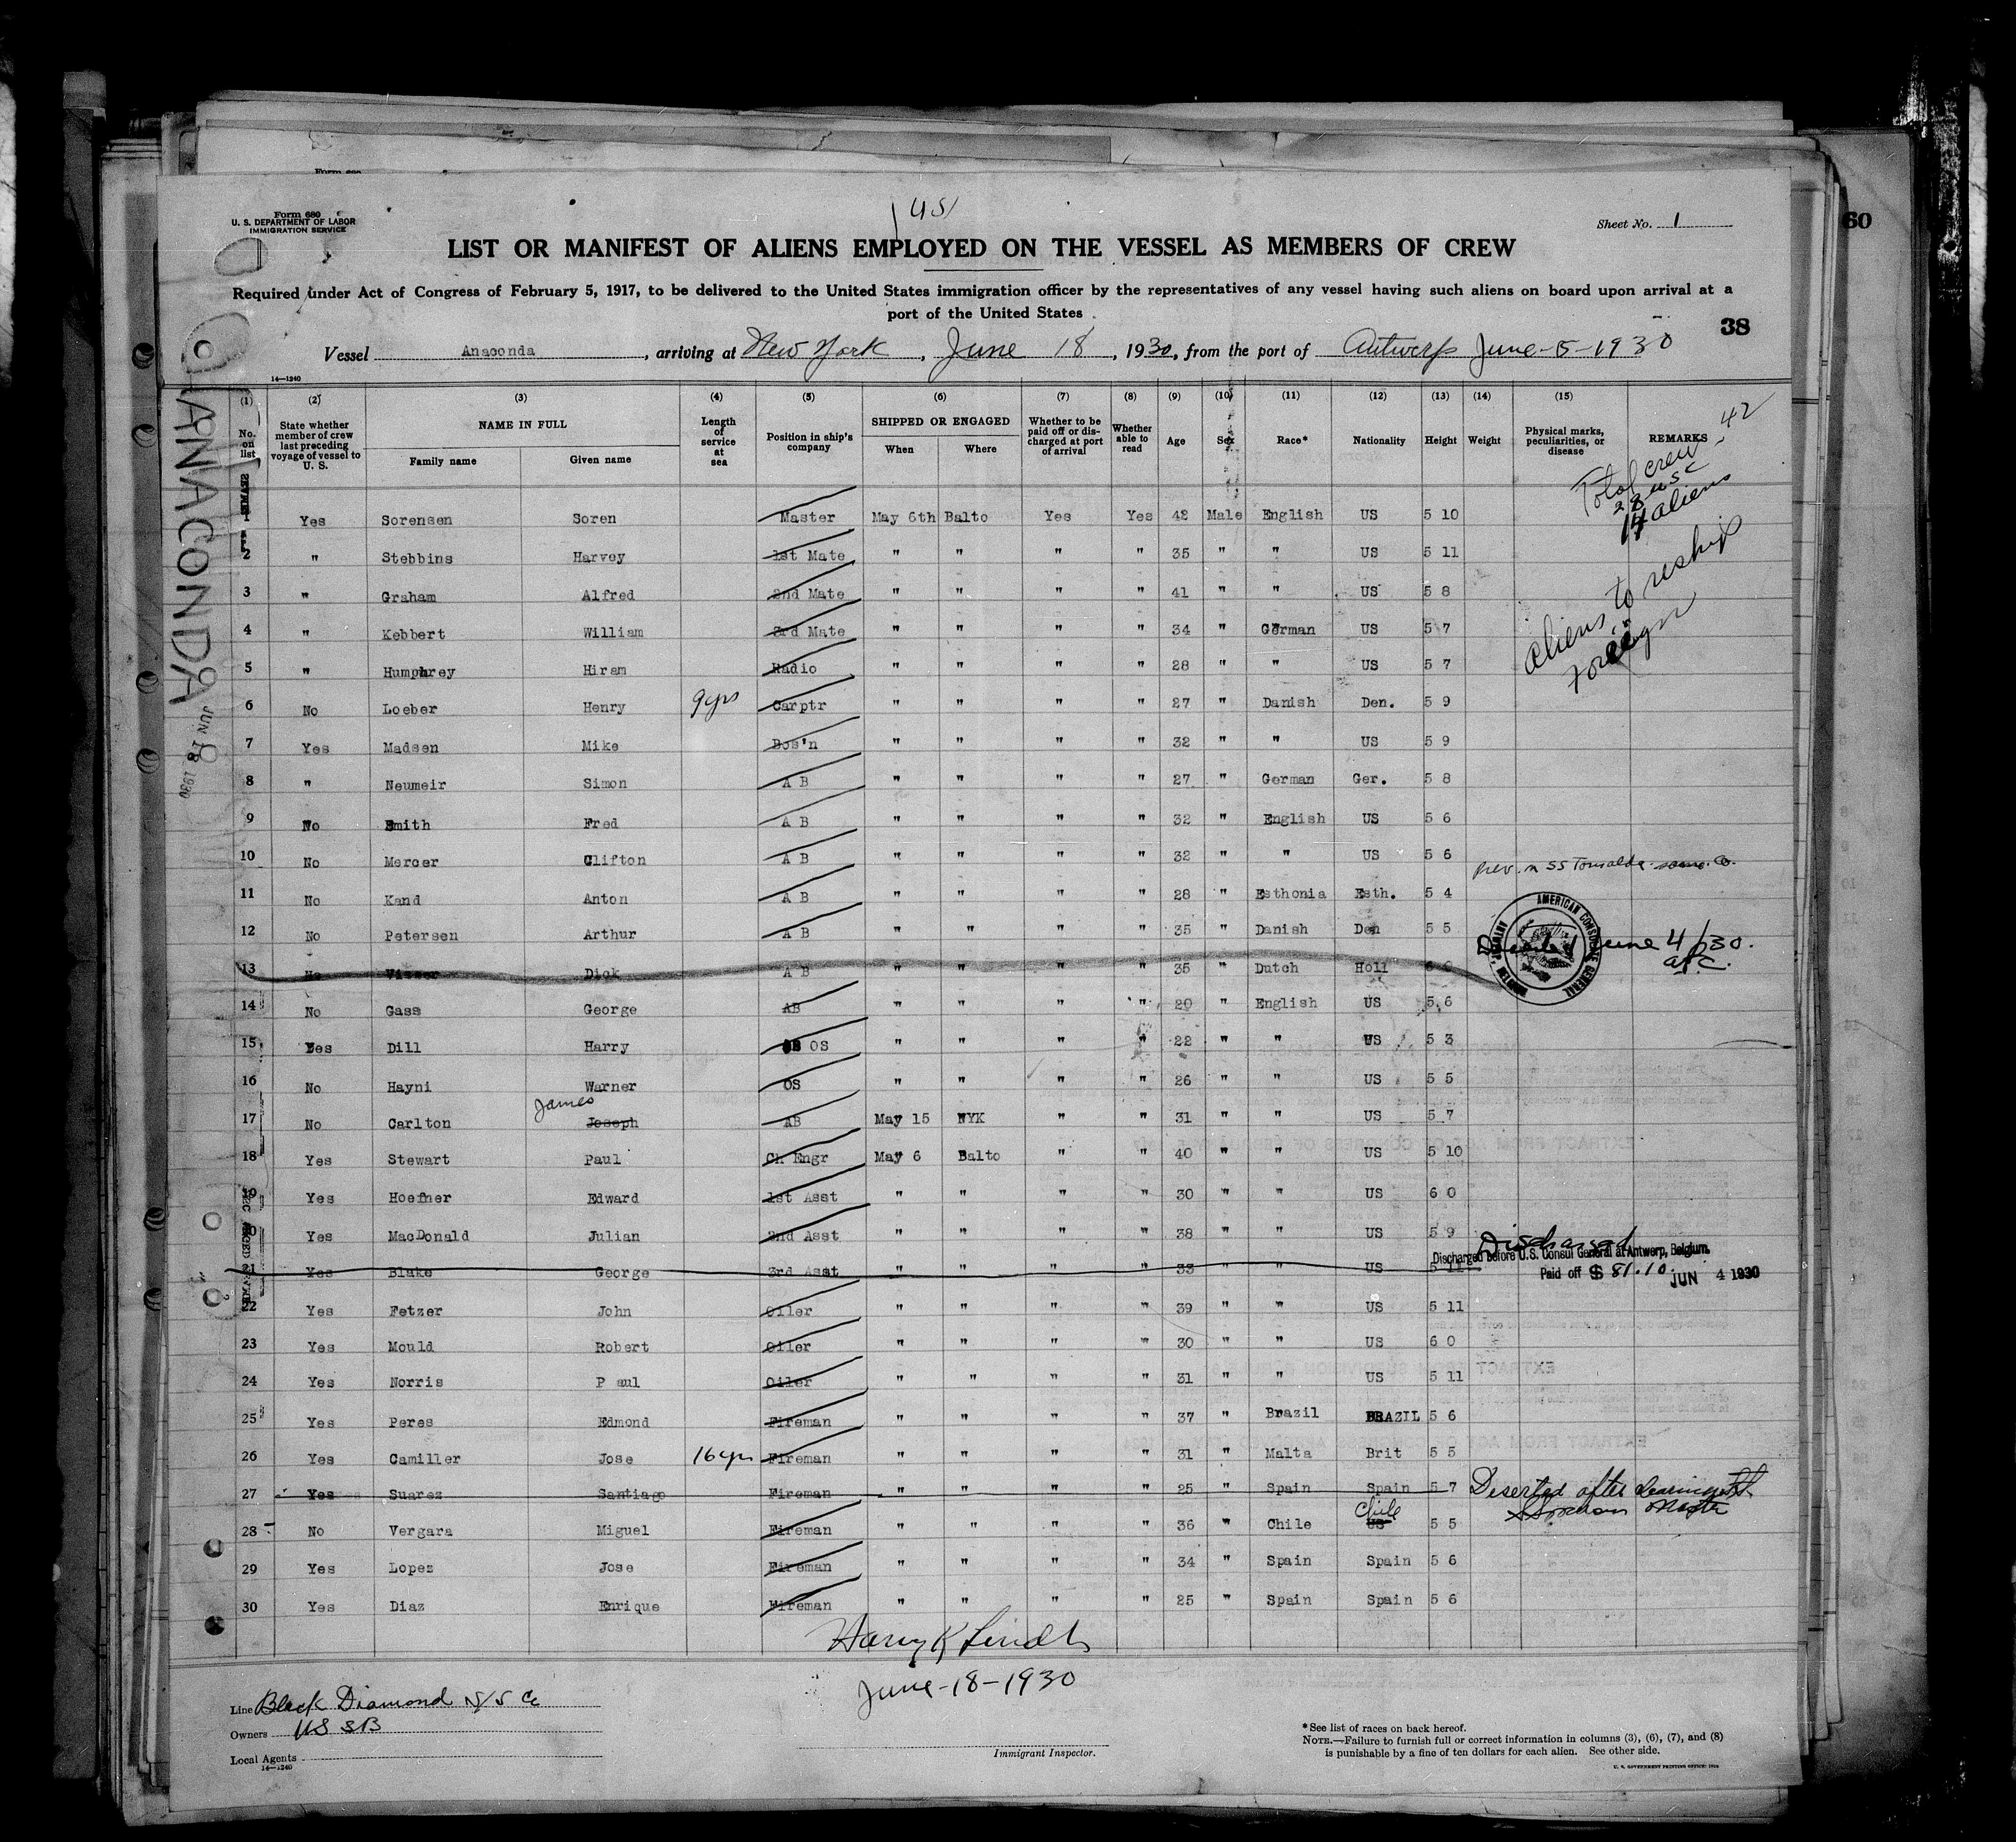 Form 680
U. S. DEPARTMENT OF LABOR
IMMIGRATION SERVICE
US
Sheet No. 1
60
LIST OR MANIFEST OF ALIENS EMPLOYED ON THE VESSEL AS MEMBERS OF CREW
Required under Act of Congress of February 5, 1917, to be delivered to the United States immigration officer by the representatives of any vessel having such aliens on board upon arrival at a
port of the United States
38
Vessel Anaconda, arriving at New York, June 18, 1930, from the port of Antwerp June-5-1930
14—1240
ANACONDA
JUN 18 1930
(1) (2) (3) (4) (5) (6) (7) (8) (9) (10) (11) (12) (13) (14) (15)
No. on list
State whether member of crew last preceding voyage of vessel to U. S.
NAME IN FULL
Family name Given name
Length of service at sea
Position in ship's company
SHIPPED OR ENGAGED
When Where
Whether to be paid off or discharged at port of arrival
Whether able to read
Age Sex Race* Nationality Height Weight
Physical marks, peculiarities, or disease
REMARKS
Total crew - 42
28 USC
14 aliens
aliens to reship
foreign
1 Yes Sorensen Soren Master May 6th Balto Yes Yes 42 Male English US 5 10
2 " Stebbins Harvey 1st Mate " " " " 35 " " US 5 11
3 " Graham Alfred 2nd Mate " " " " 41 " " US 5 8
4 " Kebbert William 3rd Mate " " " " 34 " German US 5 7
5 " Humphrey Hiram Radio " " " " 28 " " US 5 7
6 No Loeber Henry 9yrs Carptr " " " " 27 " Danish Den. 5 9
7 Yes Madsen Mike Bos'n " " " " 32 " " US 5 9
8 " Neumeir Simon A B " " " " 27 " German Ger. 5 8
9 No Smith Fred A B " " " " 32 " English US 5 6
10 No Mercer Clifton A B " " " " 32 " " US 5 6
11 No Kand Anton A B " " " " 28 " Esthonia Esth. 5 4 Prev. in SS Tomalda same Co.
12 No Petersen Arthur A B " " " " 35 " Danish Den 5 5
AMERICAN CONSULATE GENERAL
June 4/30.
13 No Visser Dick A B " " " " 35 " Dutch Holl
14 No Gass George AB " " " " 20 " English US 5 6
15 Yes Dill Harry OS " " " " 22 " " US 5 3
16 No Hayni Warner OS " " " " 26 " " US 5 5
17 No Carlton James Joseph AB May 15 NYK " " 31 " " US 5 7
18 Yes Stewart Paul Ch Engr May 6 Balto " " 40 " " US 5 10
19 Yes Hoefner Edward 1st Asst " " " " 30 " " US 6 0
20 Yes MacDonald Julian 2nd Asst " " " " 38 " " US 5 9
Discharged
Discharged before U.S. Consul General at Antwerp, Belgium.
Paid off $ 81.10. JUN 4 1930
21 Yes Blake George 3rd Asst " " " " 33 " " US 5 11
22 Yes Fetzer John Oiler " " " " 39 " " US 5 11
23 Yes Mould Robert Oiler " " " " 30 " " US 6 0
24 Yes Norris P aul Oiler " " " " 31 " " US 5 11
25 Yes Peres Edmond Fireman " " " " 37 " Brazil BRAZIL 5 6
26 Yes Camiller Jose 16yrs Fireman " " " " 31 " Malta Brit 5 5
27 Yes Suarez Santiago Fireman " " " " 25 " Spain Spain 5 7 Deserted after
Sorensen Master
28 No Vergara Miguel Fireman " " " " 36 " Chile US Chile 5 5
29 Yes Lopez Jose Fireman " " " " 34 " Spain Spain 5 6
30 Yes Diaz Enrique Fireman " " " " 25 " Spain Spain 5 6
June-18-1930
Immigrant Inspector.
Line Black Diamond S/S Co
Owners US SB
Local Agents
14—1240
* See list of races on back hereof.
NOTE.—Failure to furnish full or correct information in columns (3), (6), (7), and (8)
is punishable by a fine of ten dollars for each alien. See other side.
U. S. GOVERNMENT PRINTING OFFICE: 1928